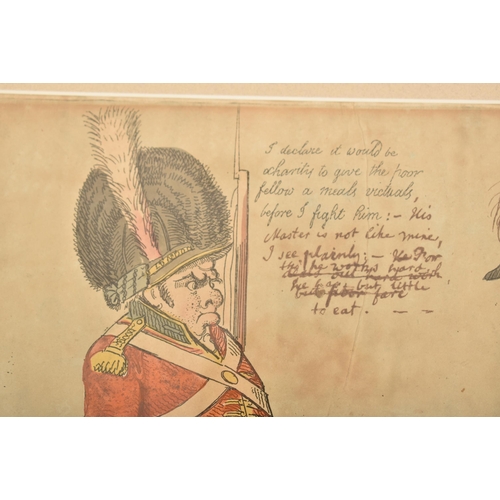 I declare it would be
charity to give the poor
fellow a meals victuals,
before I fight him: – His
Master is not like mine,
I see plainly; –
he works hard
he gets but little
fare
to eat. – –